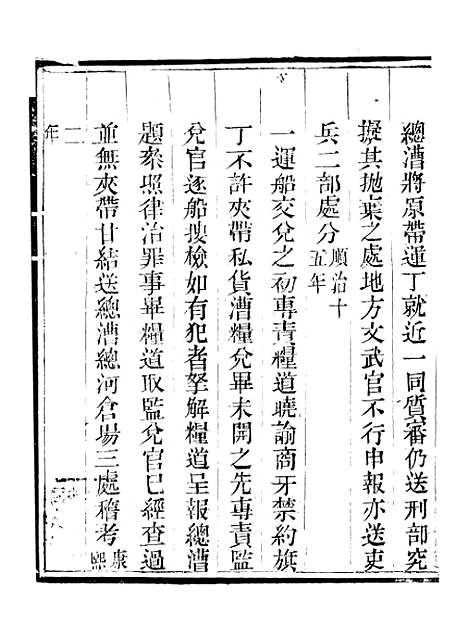 總漕將原帶運丁就近一同質審仍送刑部究
擬其拋棄之處地方文武官不行申報亦送吏
兵二部處分順治十五年
一運船交兌之初專責糧道曉諭商牙禁約旗
丁不許夾帶私貨漕糧兌畢未開之先專責監
兌官逐船搜檢如有犯者拏解糧道呈報總漕
題參照律治罪事畢糧道取監兌官已經查過
並無夾帶甘結送總漕總河倉場三處稽考康熙
二年